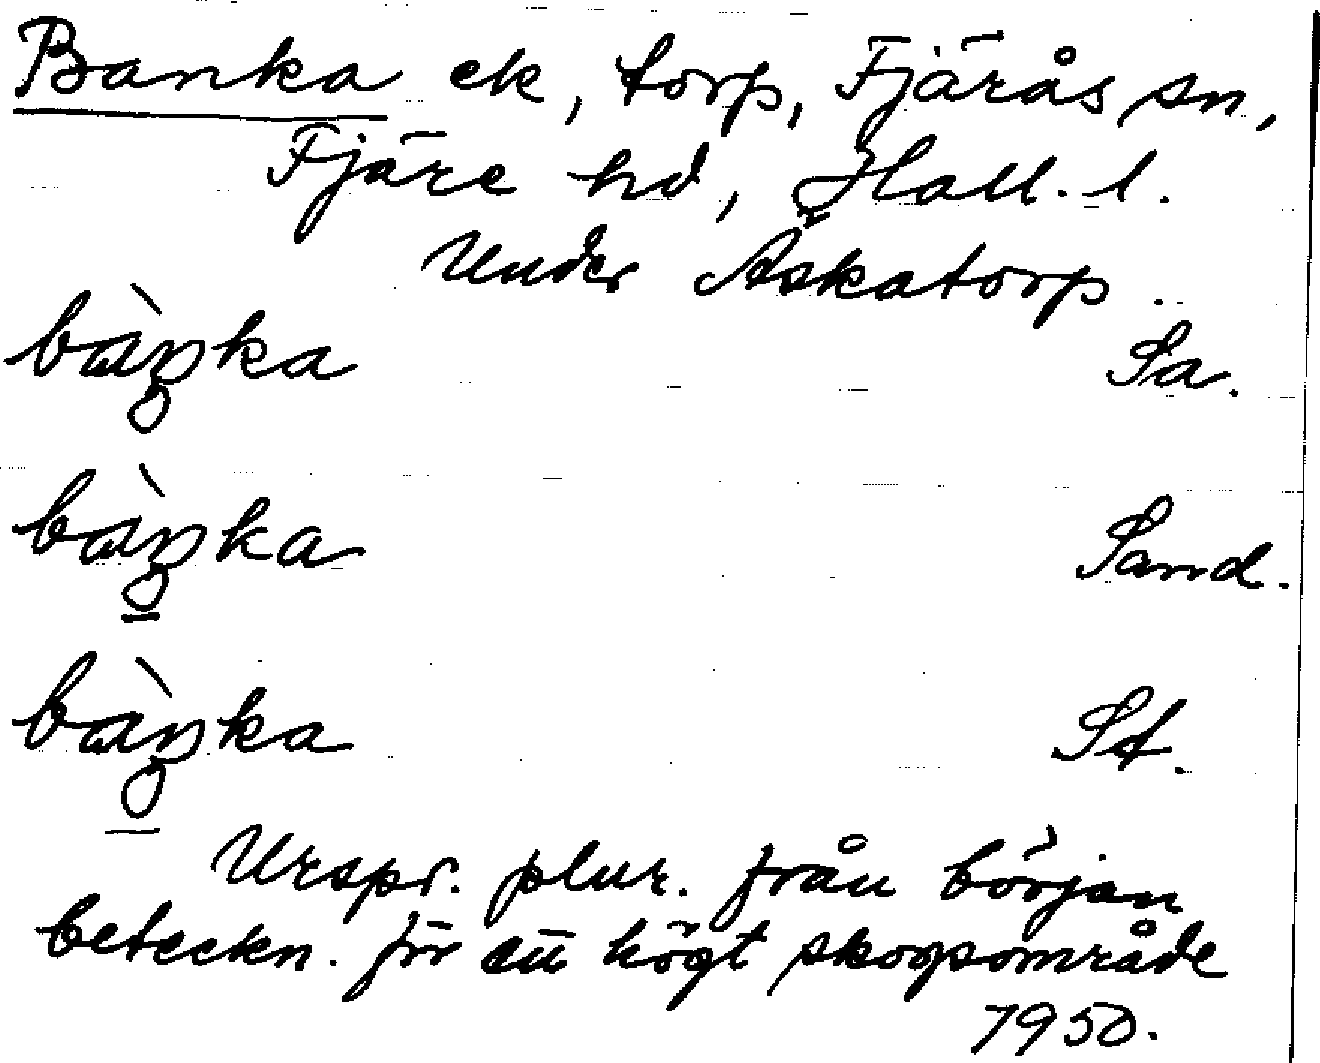 Banka ek, torp, Fjärås sn,
Fjäre hd, Hall. l.
Under Åskatorp.
bàŋka Sa.
bàŋka Sand.
bàŋka St.
Urspr. plur. från början
beteckn. för ett högt skogsområde
1950.